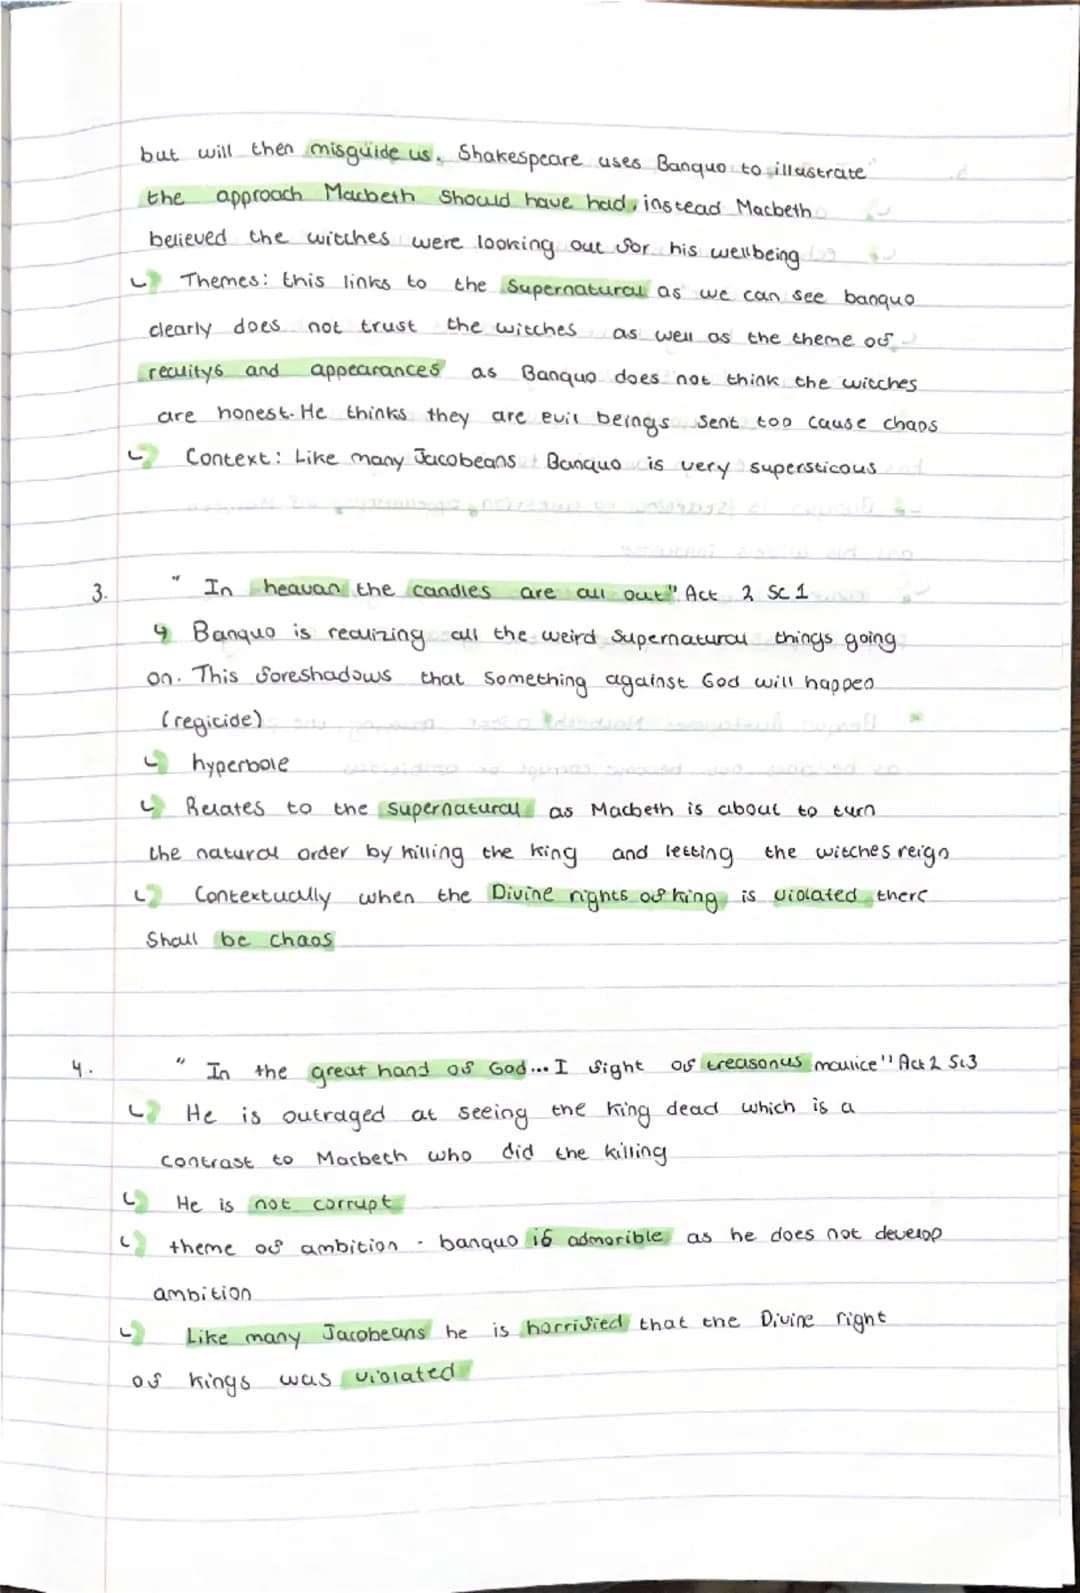 but will then misguide us. Shakespeare uses Banquo to illustrate
the approach Macbeth should have had, instead Macbeth
believed the witches were looking out for his wellbeing
↳ Themes: this links to the supernatural as we can see banquo
clearly does not trust the witches as well as the theme of
realitys and appearances as Banquo does not think the witches
are honest. He thinks they are evil beings sent too cause chaos
↳ Context: Like many Jacobeans Banquo is very supersticous
3. " In heavan the candles are all out" Act 2 Sc 1
↳ Banquo is realizing all the weird supernatural things going
on. This foreshadows that something against God will happen
(regicide)
↳ hyperbole
↳ Relates to the supernatural as Macbeth is about to turn
the natural order by killing the king and letting the witches reign
↳ Contextually when the Divine rights of king is violated there
shall be chaos
4. " In the great hand of God... I fight of treasonus malice" Act 2 Sc3
↳ He is outraged at seeing the king dead which is a
contrast to Macbeth who did the killing
↳ He is not corrupt
↳ theme of ambition - banquo is admorible as he does not develop
ambition
↳ Like many Jacobeans he is horrified that the Divine right
of kings was violated